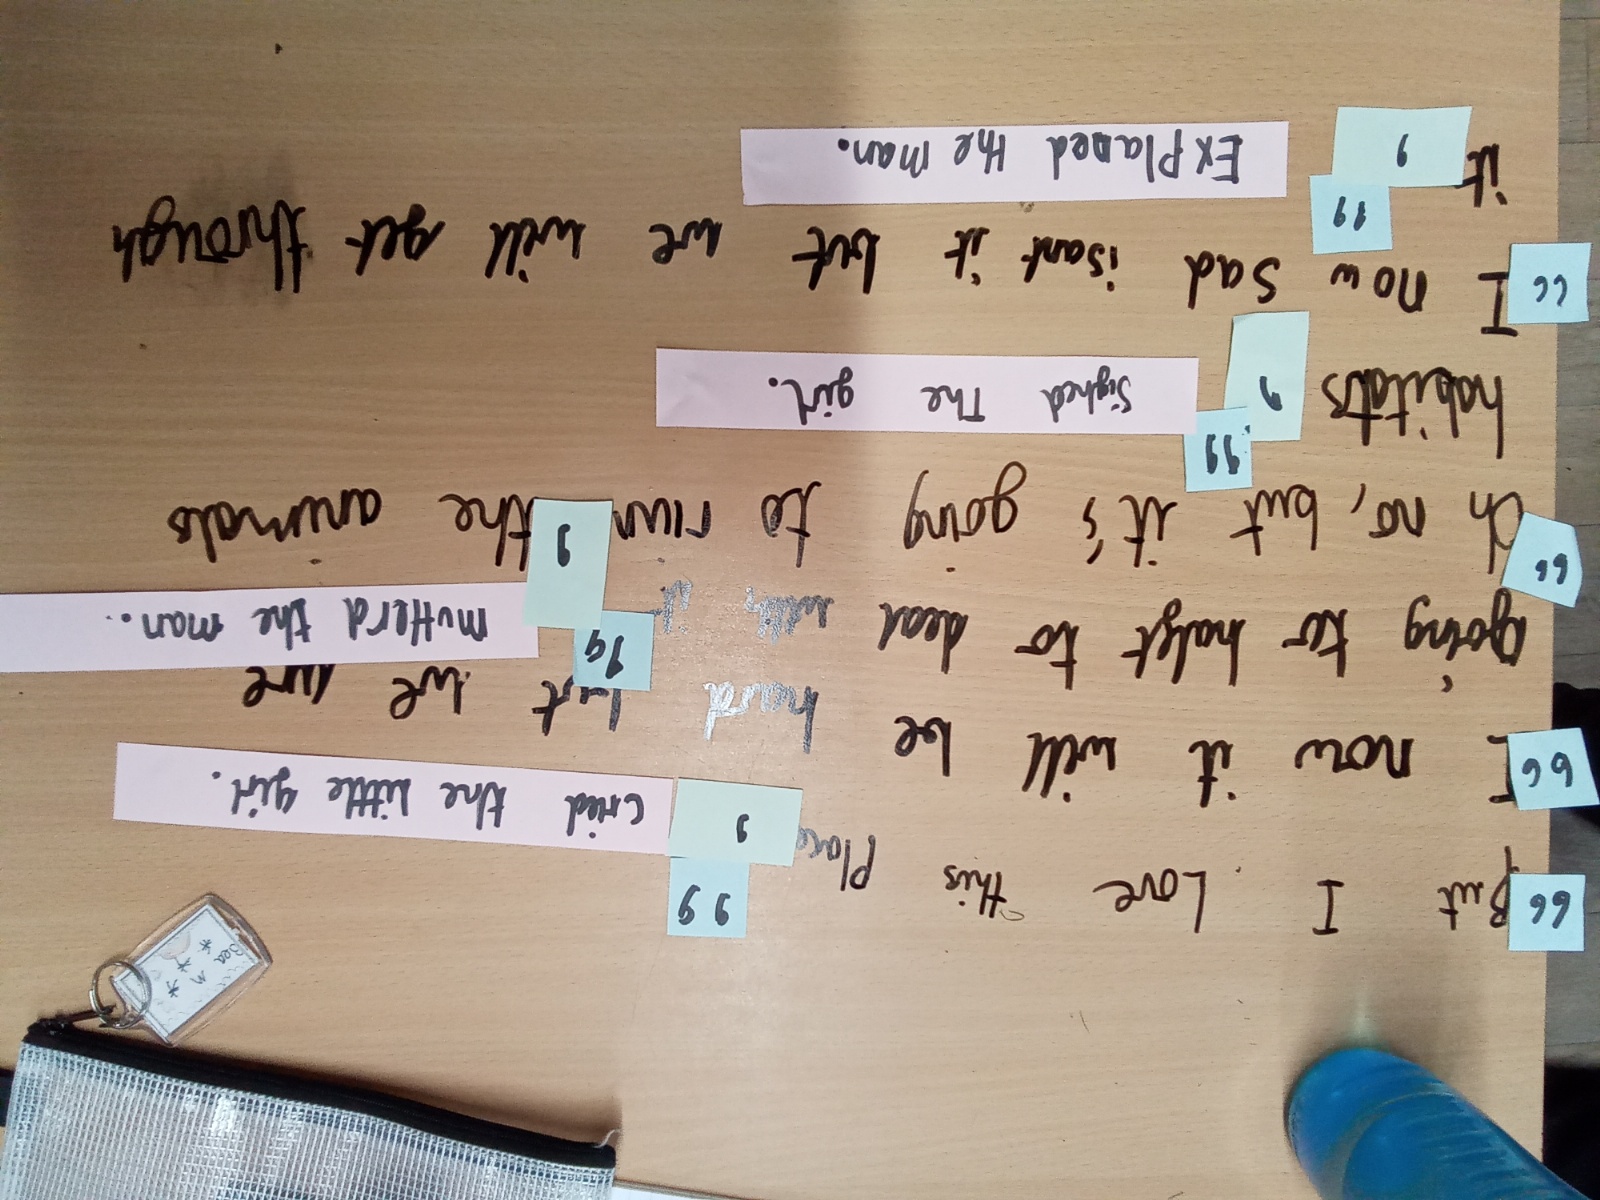 66 But I Love this Place 99 , cried the little girl.
66 I now it will be hard but we are
going to haft to deal with it 99 , mutterd the man.
66 Oh no, but it's going to ruin the animals
habitats 99 , sighed The girl.
66 I now sad isant it but we will get through
it 99 , ExPlaned the man.